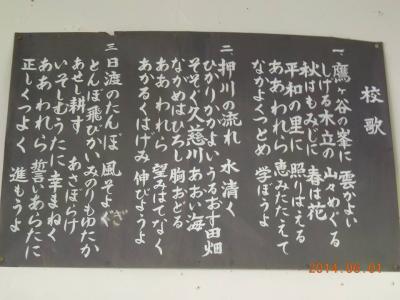 校歌
一、鷹ヶ谷の峯に 雲かよい
しげる木立の 山々めぐる
秋はもみじに 春は花
平和の里に 照りはえる
ああわれら 恵みたたえて
なかよくつとめ 学ぼうよ
二 押川の流れ 水清く
ひかりかがよいうるおす田畑
そそぐ久慈川 あおい海
ながめはひろし 胸おどる
ああわれら 望みはてなく
あかるくはげみ 伸びようよ
三 日渡のたんぼ 風そよぎ
とんぼ飛びかいみのりもゆたか
あせし耕す あさぼらけ
いそしむうたに 幸まねく
ああわれら 誓いあらたに
正しくつよく 進もうよ
2014.06.01